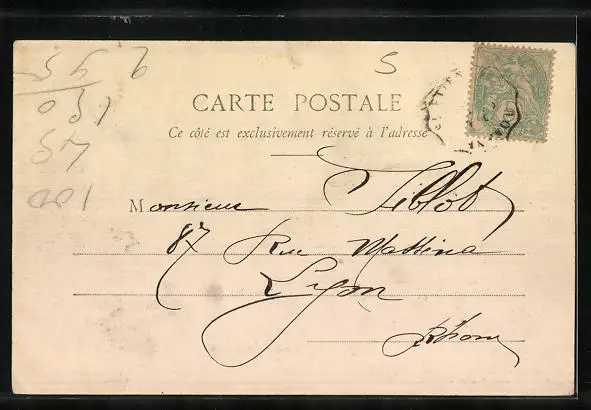 S
CARTE POSTALE
Ce côté est exclusivement réservé à l'adresse
Monsieur Tiblot
87 Rue Masséna
Lyon
Rhone